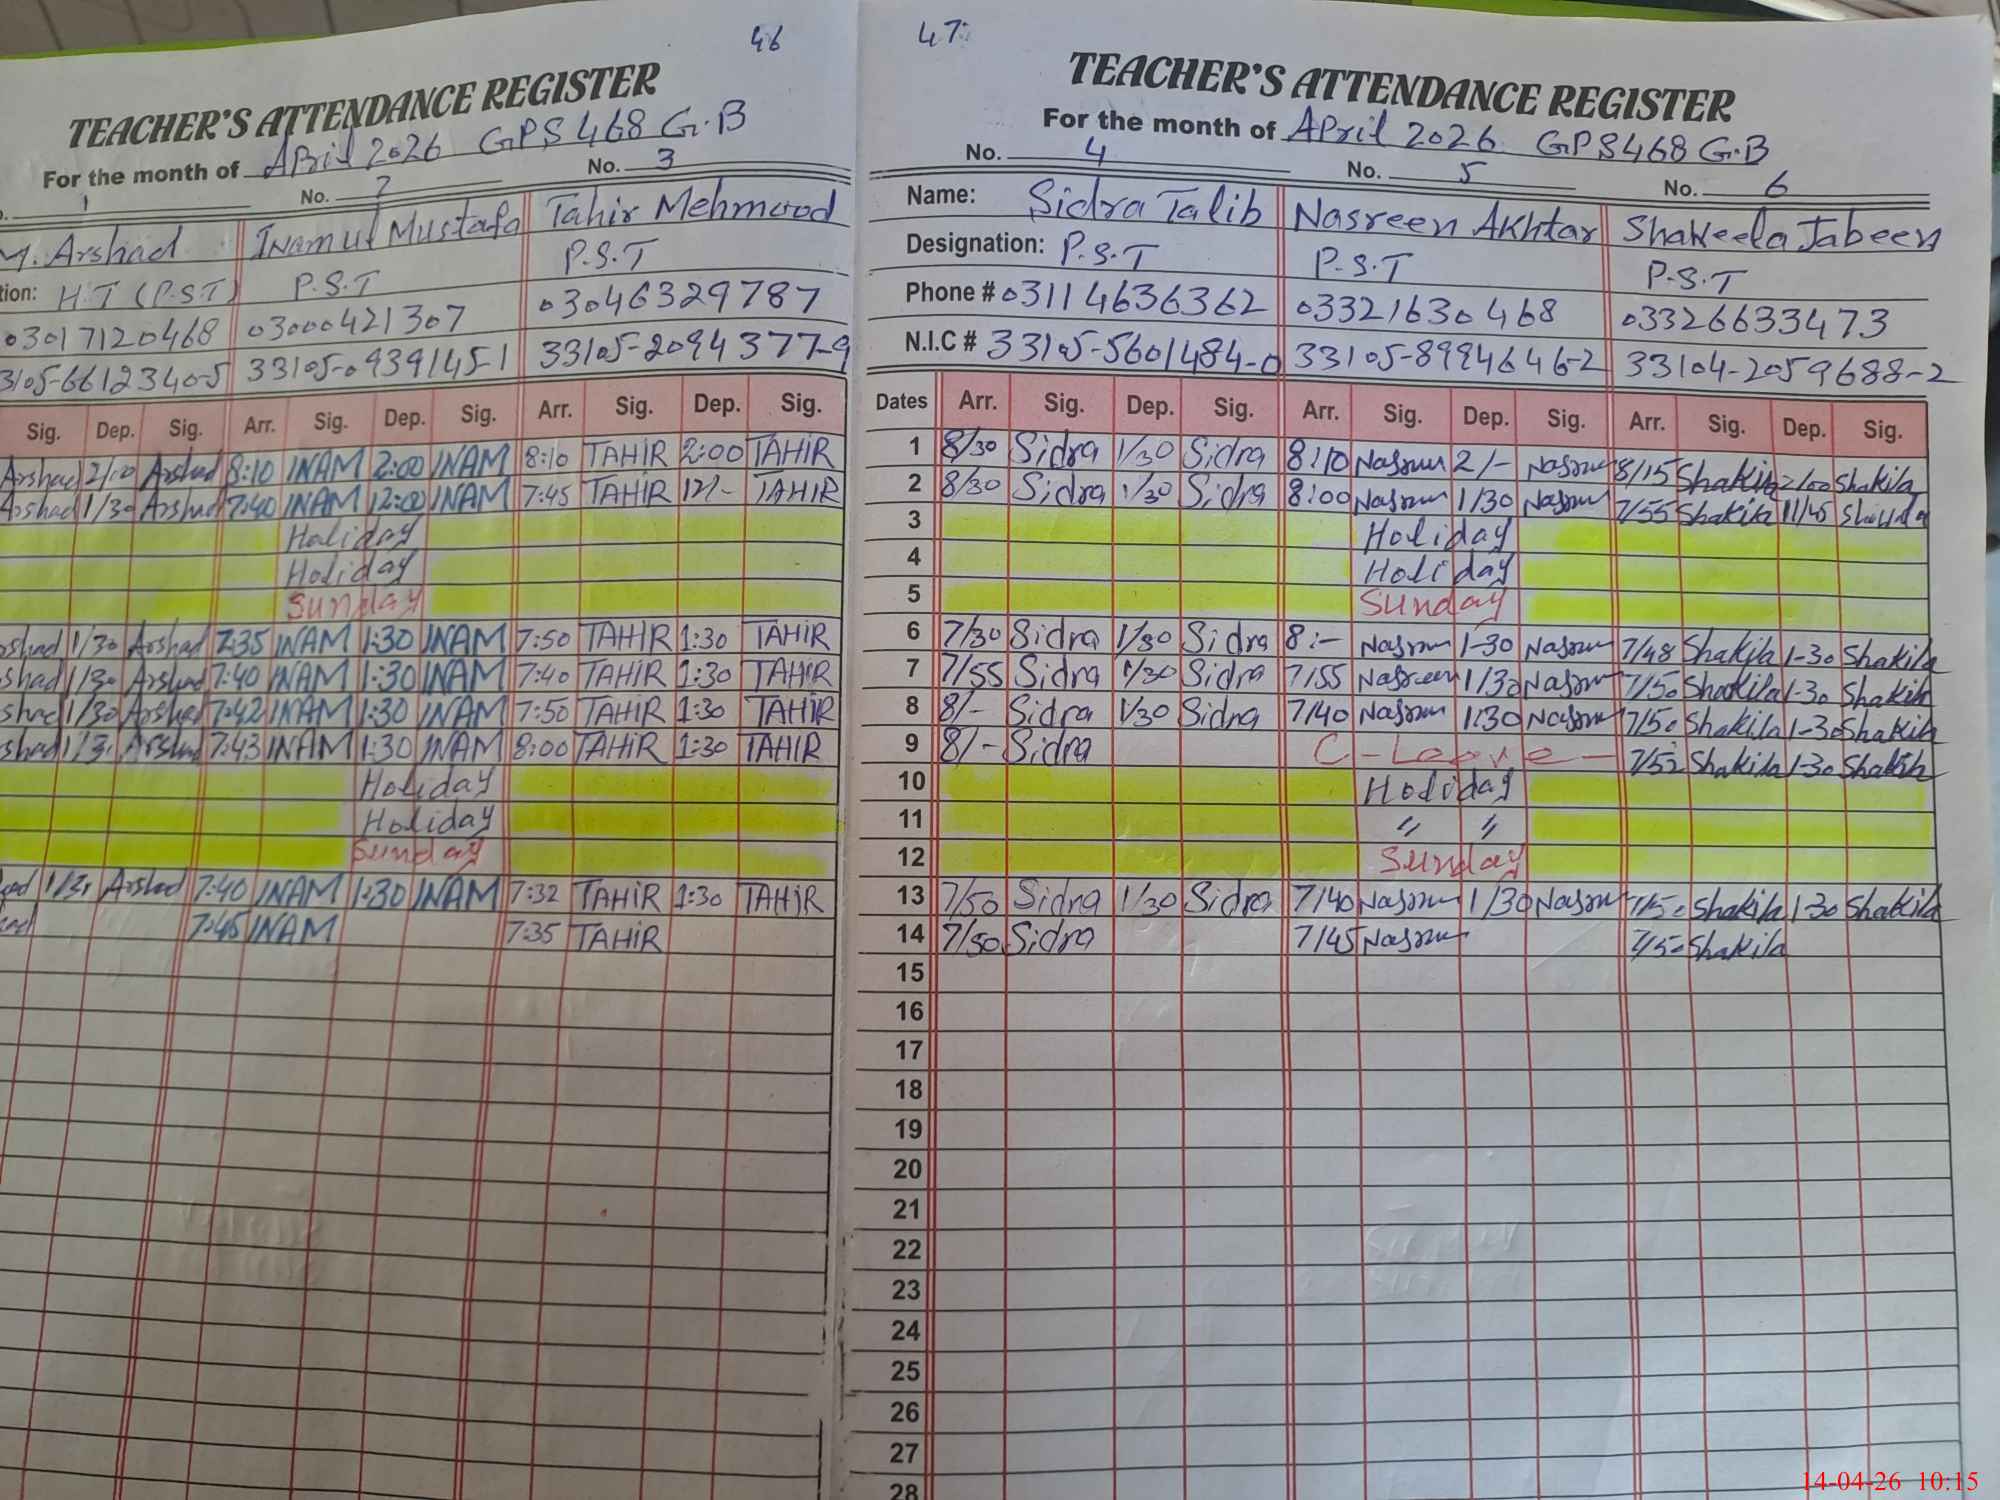 46
TEACHER'S ATTENDANCE REGISTER
For the month of April 2026 GPS 468 G.B
1 No. 2 No. 3
M. Arshad Inamul Mustafa Tahir Mehmood
tion: H.T (P.S.T) P.S.T P.S.T
03017120468 03000421307 03046329787
3105-6612340-5 33105-0939145-1 33105-2094377-9
Sig. Dep. Sig. Arr. Sig. Dep. Sig. Arr. Sig. Dep. Sig.
Arshad 2/00 Arshad 8:10 INAM 2:00 INAM 8:10 TAHIR 2:00 TAHIR
Arshad 1/30 Arshad 7:40 INAM 12:00 INAM 7:45 TAHIR 12/- TAHIR
Holiday
Holiday
Sunday
shad 1/30 Arshad 7:35 INAM 1:30 INAM 7:50 TAHIR 1:30 TAHIR
shad 1/30 Arshad 7:40 INAM 1:30 INAM 7:40 TAHIR 1:30 TAHIR
shad 1/30 Arshad 7:42 INAM 1:30 INAM 7:50 TAHIR 1:30 TAHIR
shad Arshad 7:43 INAM 1:30 INAM 8:00 TAHIR 1:30 TAHIR
Holiday
Holiday
Sunday
Arshad 7:40 INAM 1:30 INAM 7:32 TAHIR 1:30 TAHIR
7:45 INAM 7:35 TAHIR
47
TEACHER'S ATTENDANCE REGISTER
For the month of April 2026 GPS 468 G.B
No. 4 No. 5 No. 6
Name: Sidra Talib Nasreen Akhtar Shakeela Jabeen
Designation: P.S.T P.S.T P.S.T
Phone # 03114636362 03321630468 03326633473
N.I.C # 33105-5601484-0 33105-8994646-2 33104-2059688-2
Dates Arr. Sig. Dep. Sig. Arr. Sig. Dep. Sig. Arr. Sig. Dep. Sig.
1 8/30 Sidra 1/30 Sidra 8:10 Nasreen 2/- Nasreen 8/15 Shakila 2/00 Shakila
2 8/30 Sidra 1/30 Sidra 8:00 Nasreen 1/30 Nasreen 7/55 Shakila 11/45 Shakila
3 Holiday
4 Holiday
5 Sunday
6 7/30 Sidra 1/30 Sidra 8:- Nasreen 1-30 Nasreen 7/48 Shakila 1-30 Shakila
7 7/55 Sidra 1/30 Sidra 7/55 Nasreen 1/30 Nasreen 7/50 Shakila 1-30 Shakila
8 8/- Sidra 1/30 Sidra 7/40 Nasreen 1:30 Nasreen 7/50 Shakila 1-30 Shakila
9 8/- Sidra C-Leave - 7/52 Shakila 1-30 Shakila
10 Holiday
11 " "
12 Sunday
13 7/50 Sidra 1/30 Sidra 7/40 Nasreen 1/30 Nasreen 7/50 Shakila 1-30 Shakila
14 7/50 Sidra 7/45 Nasreen 7/50 Shakila
15
16
17
18
19
20
21
22
23
24
25
26
27
28
14-04-26 10:15